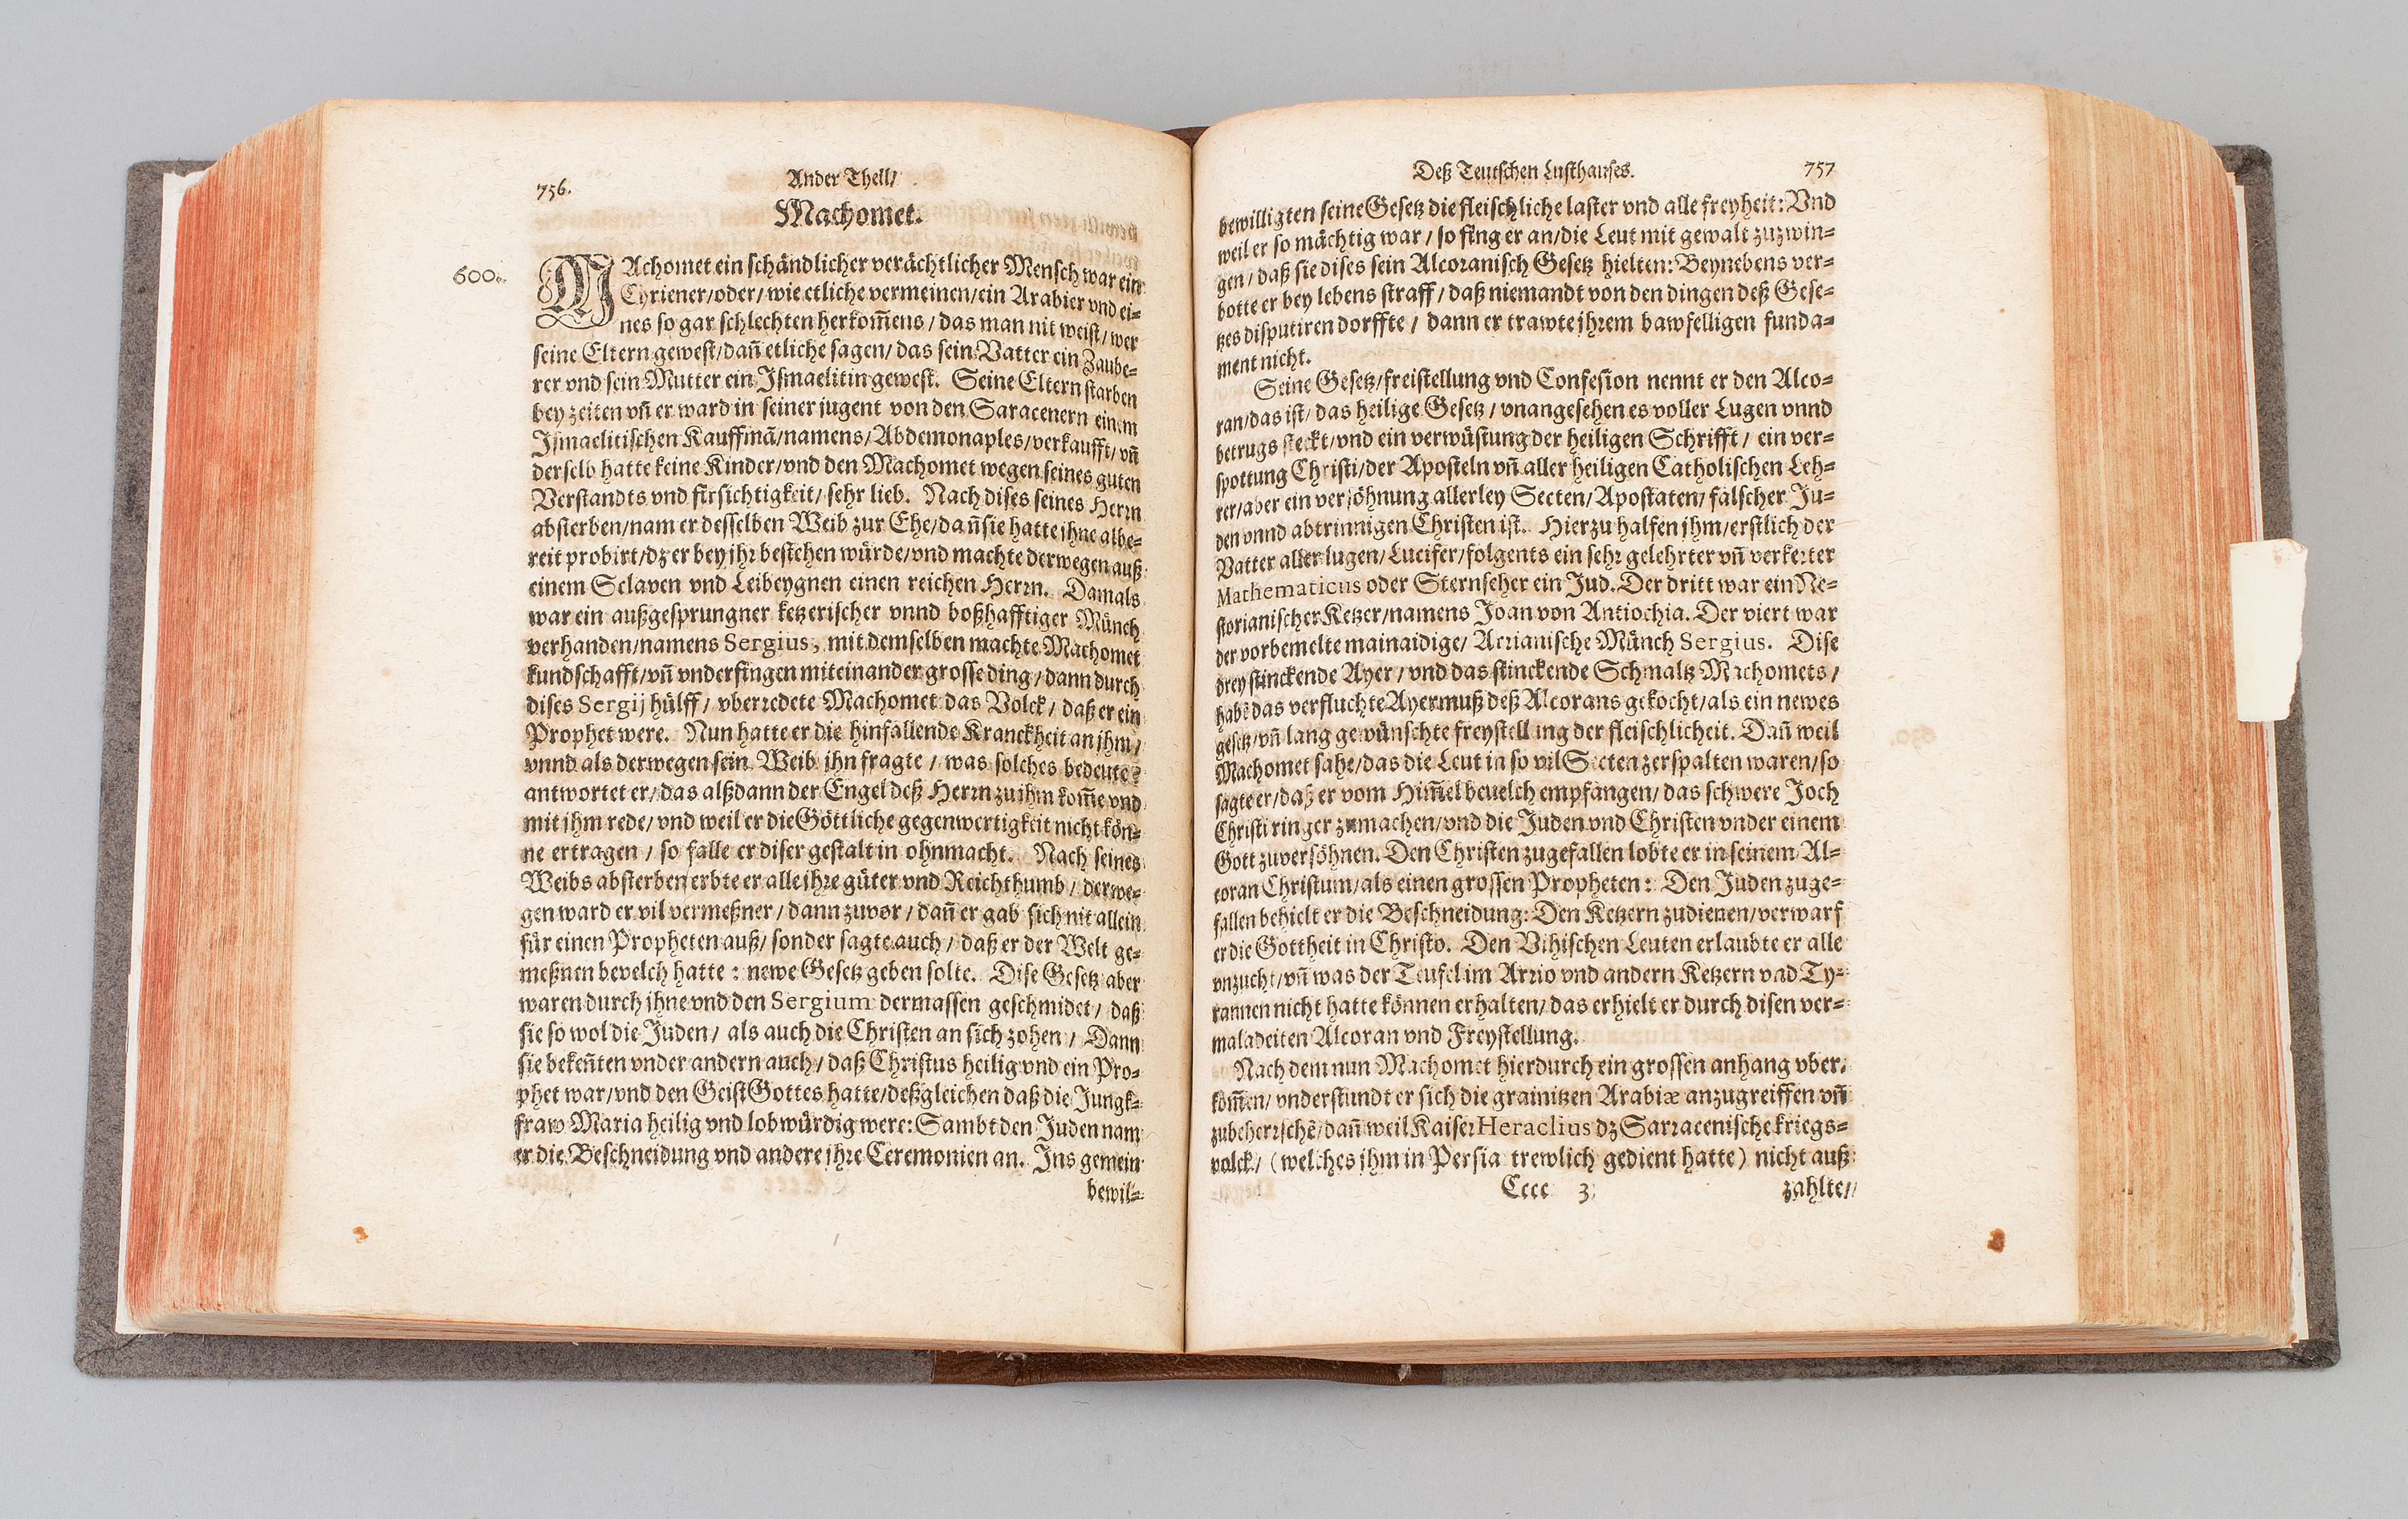 756.
Ander Theil/
Machomet.
600.
MAchomet ein schändlicher verächtlicher Mensch war ein
Cyriener/oder/wie etliche vermeinen/ein Arabier vnd ei-
nes so gar schlechten herkom̄ens/das man nit weist/wer
seine Eltern gewest/dañ etliche sagen/das sein Vatter ein Zaube-
rer vnd sein Mutter ein Ismaelitin gewest. Seine Eltern starben
bey zeiten vñ er ward in seiner jugent von den Saracenern einem
Ismaelitischen Kauffmã/namens/Abdemonaples/verkaufft/vñ
derselb hatte keine Kinder/vnd den Machomet wegen seines guten
Verstandts vnd fürsichtigkeit/sehr lieb. Nach dises seines Herrn
absterben/nam er desselben Weib zur Ehe/dañ sie hatte ihne albe-
reit probirt/dz er bey ihr bestehen würde/vnd machte derwegen auß
einem Sclaven vnd Leibeygnen einen reichen Herrn. Damals
war ein außgesprungner ketzerischer vnnd boßhafftiger Münch
verhanden/namens Sergius, mit demselben machte Machomet
kundschafft/vñ vnderfingen miteinander grosse ding/dann durch
dises Sergij hülff/vberredete Machomet das Volck/daß er ein
Prophet were. Nun hatte er die hinfallende Kranckheit an jhm/
vnnd als derwegen sein Weib ihn fragte/was solches bedeute?
antwortet er/das alßdann der Engel deß Herrn zu ihm kom̄e vnd
mit jhm rede/vnd weil er die Göttliche gegenwertigkeit nicht kön-
ne ertragen/so falle er diser gestalt in ohnmacht. Nach seines
Weibs absterben erbte er alle jhre güter vnd Reichthumb/derwe-
gen ward er vil vermeßner/dann zuvor/dañ er gab sich nit allein
für einen Propheten auß/sonder sagte auch/daß er der Welt ge-
meßnen bevelch hatte: newe Gesetz geben solte. Dise Gesetz aber
waren durch ihne vnd den Sergium dermassen geschmidet/daß
sie so wol die Juden/als auch die Christen an sich zohen/Dann
sie bekeñten vnder andern auch/daß Christus heilig vnd ein Pro-
phet war/vnd den Geist Gottes hatte/deßgleichen daß die Jungk-
fraw Maria heilig vnd lobwürdig were: Sambt den Juden nam
er die Beschneidung vnd andere jhre Ceremonien an. Ins gemein
bewil-
Deß Teutschen Lusthauses.
757
bewilligten seine Gesetz die fleischliche laster vnd alle freyheit: Vnd
weil er so mächtig war/so fing er an/die Leut mit gewalt zuzwin-
gen/daß sie dises sein Alcoranisch Gesetz hielten: Beynebens ver-
botte er bey lebens straff/daß niemandt von den dingen deß Gese-
tzes disputiren dorffte/dann er trawte jhrem bawfelligen funda-
ment nicht.
Seine Gesetz/freistellung vnd Confesion nennt er den Alco-
ran/das ist/das heilige Gesetz/vnangesehen es voller Lugen vnnd
betrugs steckt/vnd ein verwüstung der heiligen Schrifft/ein ver-
spottung Christi/der Aposteln vñ aller heiligen Catholischen Leh-
rer/aber ein versöhnung allerley Secten/Apostaten/falscher Ju-
den vnnd abtrinnigen Christen ist. Hierzu halfen jhm/erstlich der
Vatter aller lugen/Lucifer/folgents ein sehr gelehrter vñ verkerter
Mathematicus oder Sternseher ein Jud. Der dritt war ein Ne-
storianischer Ketzer/namens Joan von Antiochia. Der viert war
der vorbemelte mainaidige/Arrianische Münch Sergius. Dise
drey stinckende Ayer/vnd das stinckende Schmaltz Machomets/
habẽ das verfluchte Ayermuß deß Alcorans gekocht/als ein newes
gesetz/vñ lang gewünschte freystellung der fleischlicheit. Dañ weil
Machomet sahe/das die Leut in so vil Secten zerspalten waren/so
sagte er/daß er vom Him̄el beuelch empfangen/das schwere Joch
Christi ringer zumachen/vnd die Juden vnd Christen vnder einem
Gott zuversöhnen. Den Christen zugefallen lobte er in seinem Al-
coran Christum/als einen grossen Propheten: Den Juden zuge-
fallen behielt er die Beschneidung: Den Ketzern zudienen/verwarf
er die Gottheit in Christo. Den Vihischen Leuten erlaubte er alle
vnzucht/vñ was der Teufel im Arrio vnd andern Ketzern vnd Ty-
rannen nicht hatte können erhalten/das erhielt er durch disen ver-
maladeiten Alcoran vnd Freystellung.
Nach dem nun Machomet hierdurch ein grossen anhang vber-
kom̄en/vnderstundt er sich die grainitzen Arabiæ anzugreiffen vñ
zubeherrschẽ/dañ weil Kaiser Heraclius dz Sarracenische kriegs-
volck/(welches jhm in Persia trewlich gedient hatte) nicht auß
Cccc 3
zahlte/